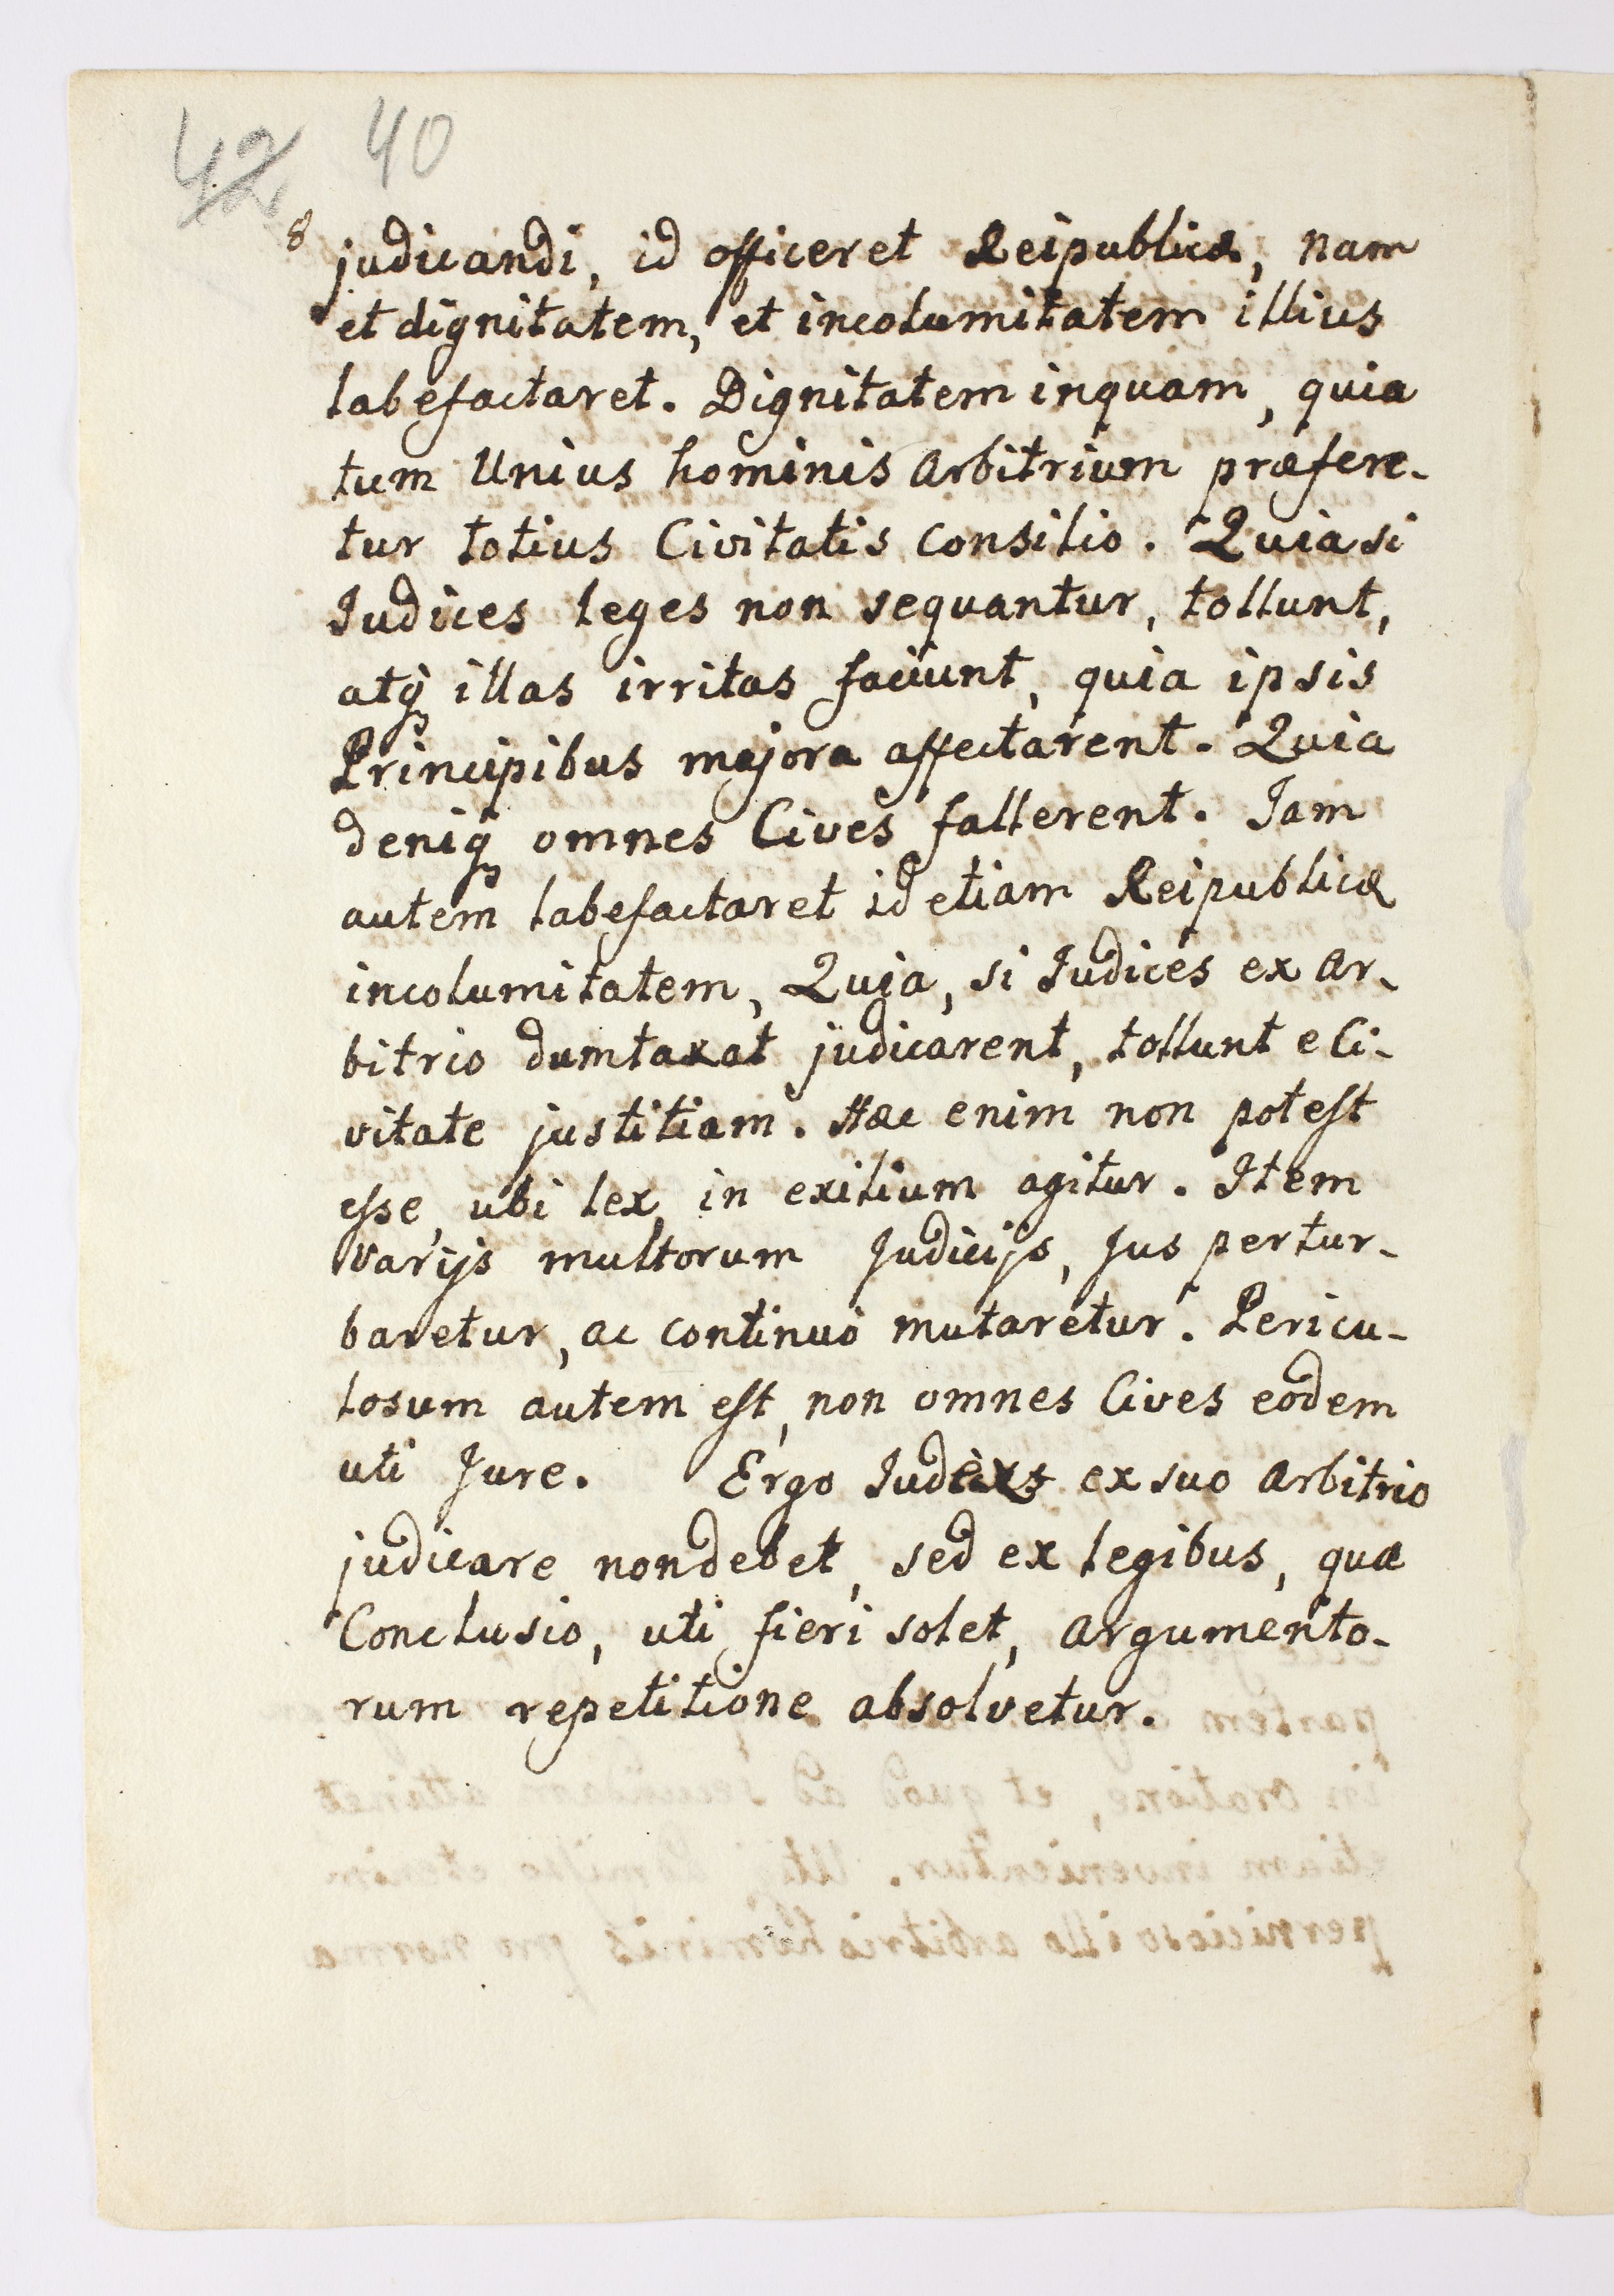 42 40
8
judicandi, id officeret Reipublicæ, nam
et dignitatem, et incolumitatem illius
labefactaret. Dignitatem inquam, quia
tum Unius hominis arbitrium præfere-
tur totius Civitatis consilio. Quia si
Judices leges non sequantur, tollunt,
atqꝫ illas irritas faciunt, quia ipsis
Principibus majora affectarent. Quia
deniqꝫ omnes Cives fallerent. Jam
autem labefactaret id etiam Reipublicæ
incolumitatem, Quia, si Judices ex ar-
bitrio dumtaxat judicarent, tollunt e Ci-
vitate justitiam. Hæc enim non potest
esse, ubi lex in exilium agitur. Item
varijs multorum Judicijs, Jus pertur-
baretur, ac continuò mutaretur. Pericu-
losum autem est, non omnes Cives eodem
uti Jure. Ergo Judex ex suo arbitrio
judicare non debet, sed ex legibus, quæ
Conclusio, uti fieri solet, argumento-
rum repetitione absolvetur.